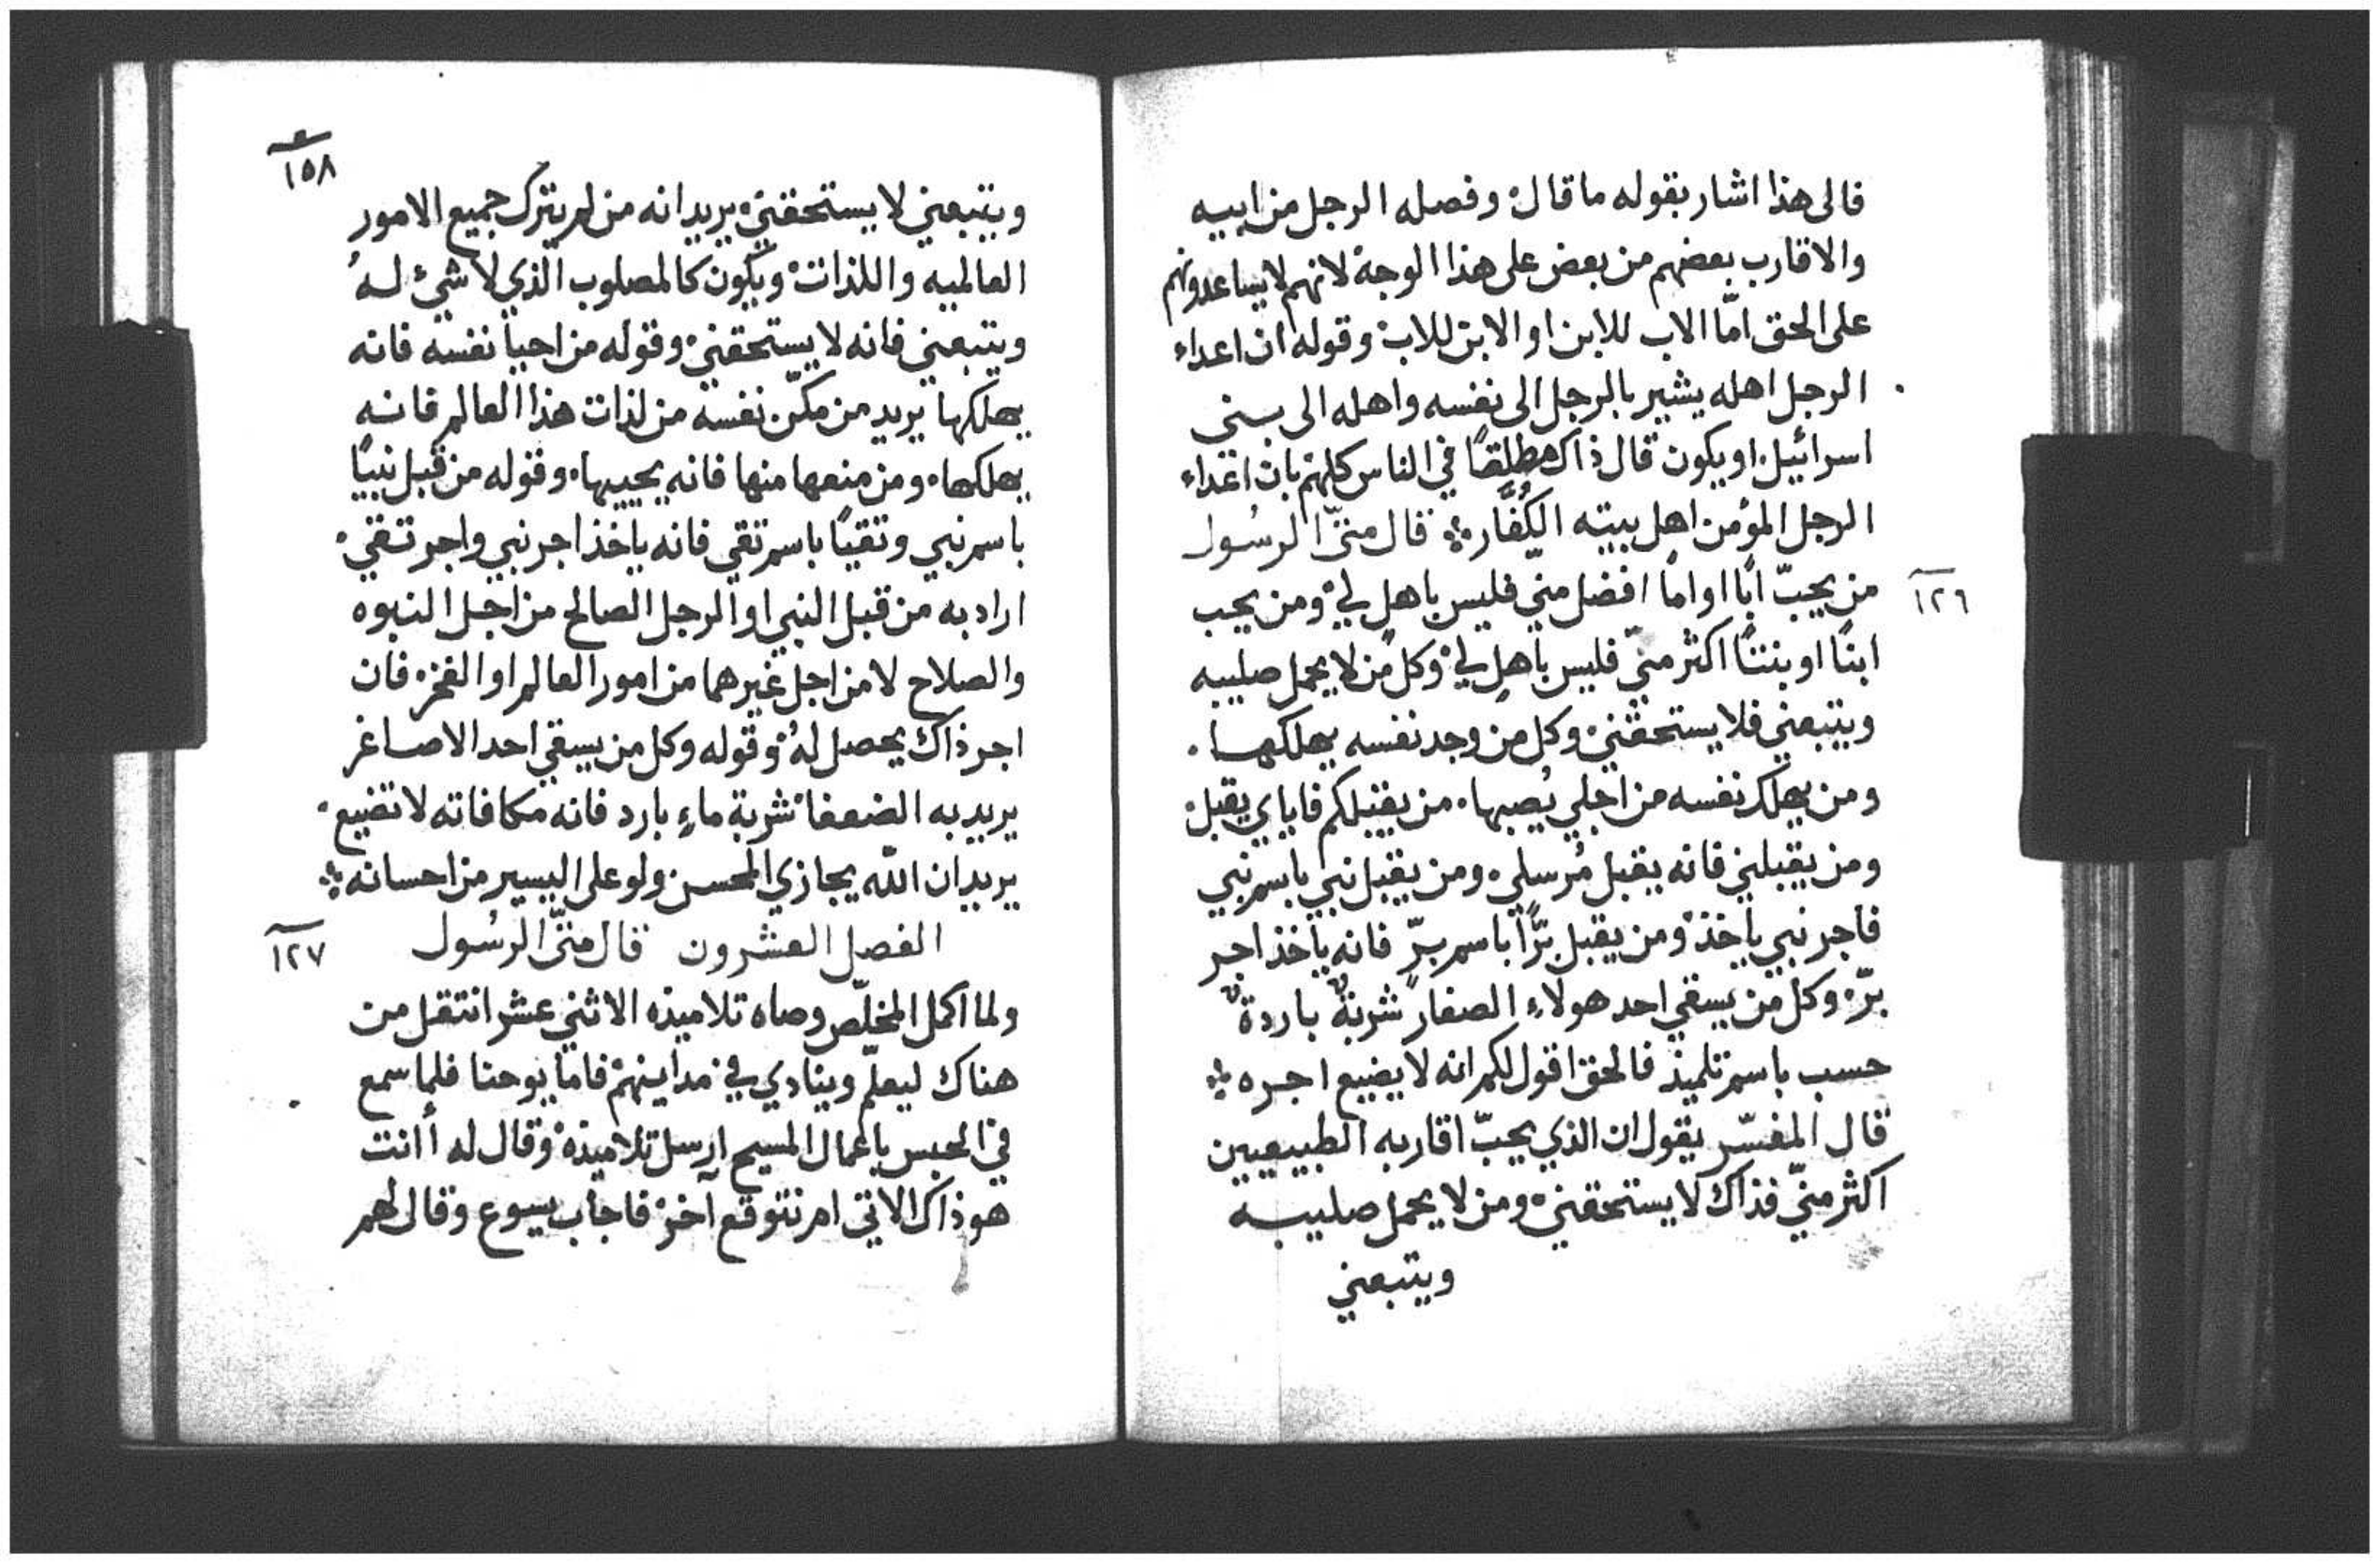 فالى هذا اشار بقوله ما قال وفصله الرجل من ابيه
والاقارب بعضهم من بعض على هذا الوجه لانهم لا يساعدونهم
على الحق امّا الاب للابن او الابن للاب وقوله ان اعداء
الرجل اهله يشير بالرجل الى نفسه واهله الى بني
اسرائيل او يكون قال ذاك مطلقًا في الناس كلهم بان اعداء
الرجل المؤمن اهل بيته الكُفّار قال متّى الرسُول
١٢٦
من يحبّ ابًا او امًا افضل منّي فليس باهل لي ومن يحب
ابنًا او بنتًا اكثر منّي فليس باهلٍ لي وكل من لا يحمل صليبه
ويتبعني فلا يستحقني وكل من وجد نفسه يهلكها
ومن يهلك نفسه من اجلي يُصبها من يقبلكم فاياي يقبل
ومن يقبلني فانه يقبل مُرسلي ومن يقبل نبي باسم نبي
فاجر نبي ياخذ ومن يقبل برًّا باسم برّ فانه ياخذ اجر
برّ وكل من يسقي احد هولاء الصغار شربةً باردة
حسب باسم تلميذ فالحق اقول لكم انه لا يضيع اجره
قال المفسّر يقول ان الذي يحبّ اقاربه الطبيعيين
اكثر منّي فذاك لا يستحقني ومن لا يحمل صليبه
ويتبعني
١٥٨
ويتبعني لا يستحقني يريد انه من لم يترك جميع الامور
العالميه واللذات ويكون كالمصلوب الذي لا شيء لهُ
ويتبعني فانه لا يستحقني وقوله من احيا نفسه فانه
يهلكها يريد من مكّن نفسه من لذات هذا العالم فانه
يهلكها ومن منعها منها فانه يحييها وقوله من قبل نبيًا
باسم نبي وتقيًا باسم تقي فانه ياخذ اجر نبي واجر تقي
اراد به من قبل النبي او الرجل الصالح من اجل النبوه
والصلاح لا من اجل غيرهما من امور العالم او الفخر فان
اجر ذاك يحصل لهُ وقوله وكل من يسقي احد الاصاغر
يريد به الضعفا شربة ماءٍ بارد فانه مكافاته لا تضيع
يريد ان اللّه يجازي المحسن ولو على اليسير من احسانه
١٢٧
الفصل العشرون قال متّى الرسُول
ولما اكمل المخلّص وصاه تلاميذه الاثني عشر انتقل من
هناك ليعلّم وينادي في مداينهم فاما يوحنا فلما سمع
في الحبس باعمال المسيح ارسل تلاميذه وقال له أانت
هو ذاك الاتي ام نتوقع آخر فاجاب يسوع وقال لهم